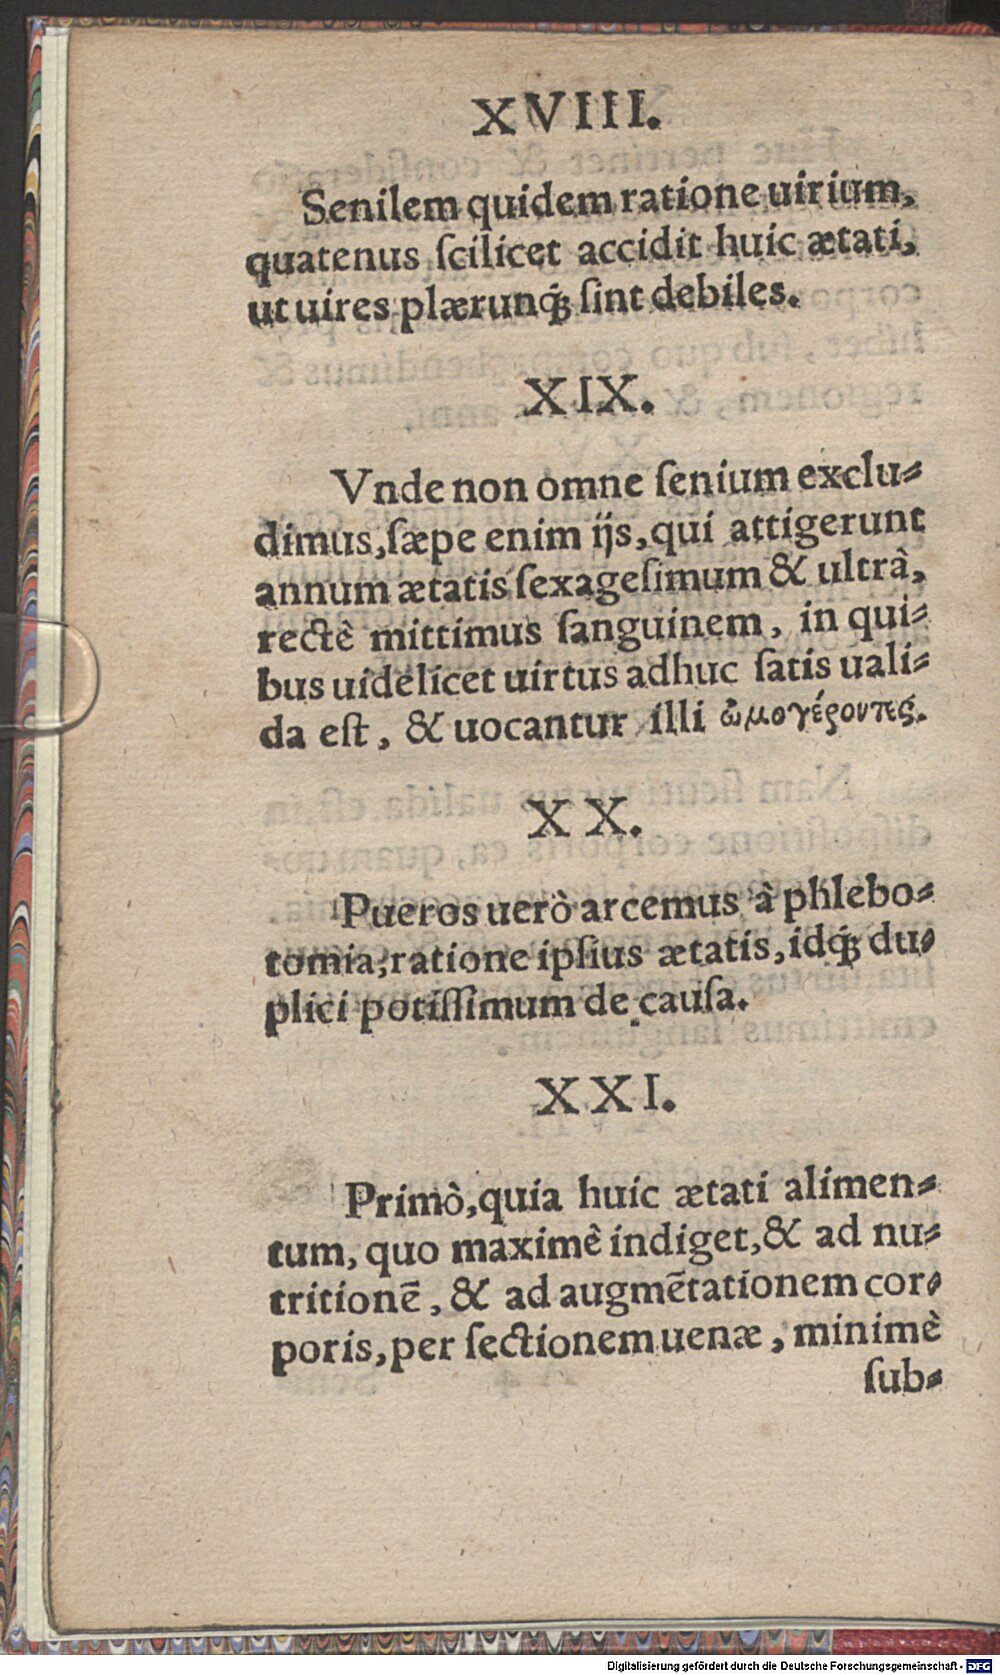 XVIII.
Senilem quidem ratione uirium,
quatenus ſcilicet accidit huic ætati,
ut uires plærunq́ꝫ ſint debiles.
XIX.
Vnde non omne ſenium exclu⸗
dimus, ſæpe enim ijs, qui attigerunt
annum ætatis ſexageſimum & ultrà,
rectè mittimus ſanguinem, in qui⸗
bus uidelicet uirtus adhuc ſatis uali⸗
da eſt, & uocantur illi ὠμογέροντες.
XX.
Pueros uerò arcemus à phlebo⸗
tomia, ratione ipſius ætatis, idq́ꝫ du⸗
plici potiſſimum de cauſa.
XXI.
Primò, quia huic ætati alimen⸗
tum, quo maximè indiget, & ad nu⸗
tritionē, & ad augmētationem cor⸗
poris, per ſectionem uenæ, minimè
ſub⸗
Digitalisierung gefördert durch die Deutsche Forschungsgemeinschaft - DFG